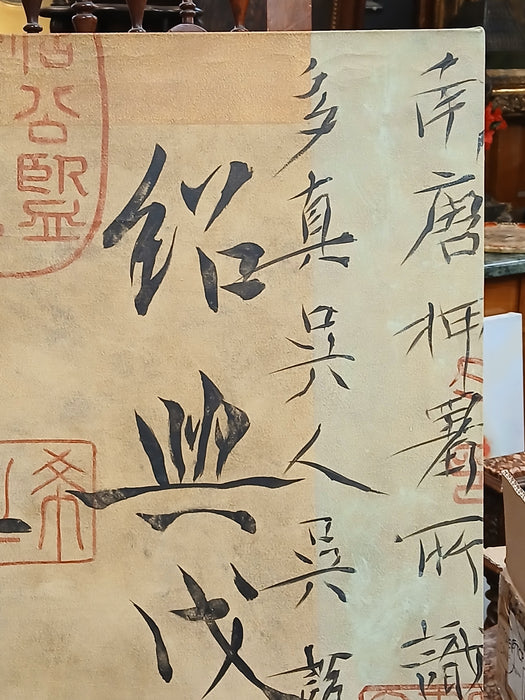 南唐押署所識
多真吳人吳
紹興戊
希